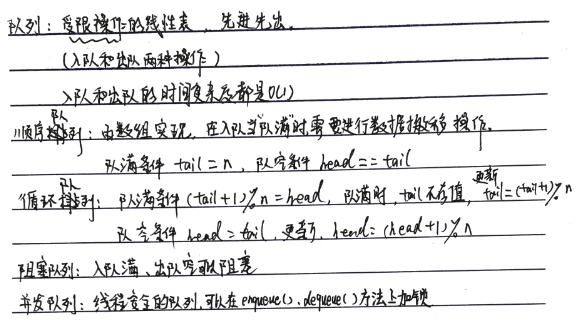 队列：受限操作的线性表，先进先出。
（入队和出队两种操作）
入队和出队的时间复杂度都是O(1)
顺序队列：由数组实现，在入队当“队满”时需要进行数据搬移操作。
队满条件 tail = n，队空条件 head == tail
循环队列：队满条件 (tail+1)%n = head，队满时，tail不存值，更新 tail = (tail+1)%n
队空条件 head = tail，更新，head = (head+1)%n
阻塞队列：入队满、出队空可以阻塞
并发队列：线程安全的队列，可以在enqueue()、dequeue()方法上加锁